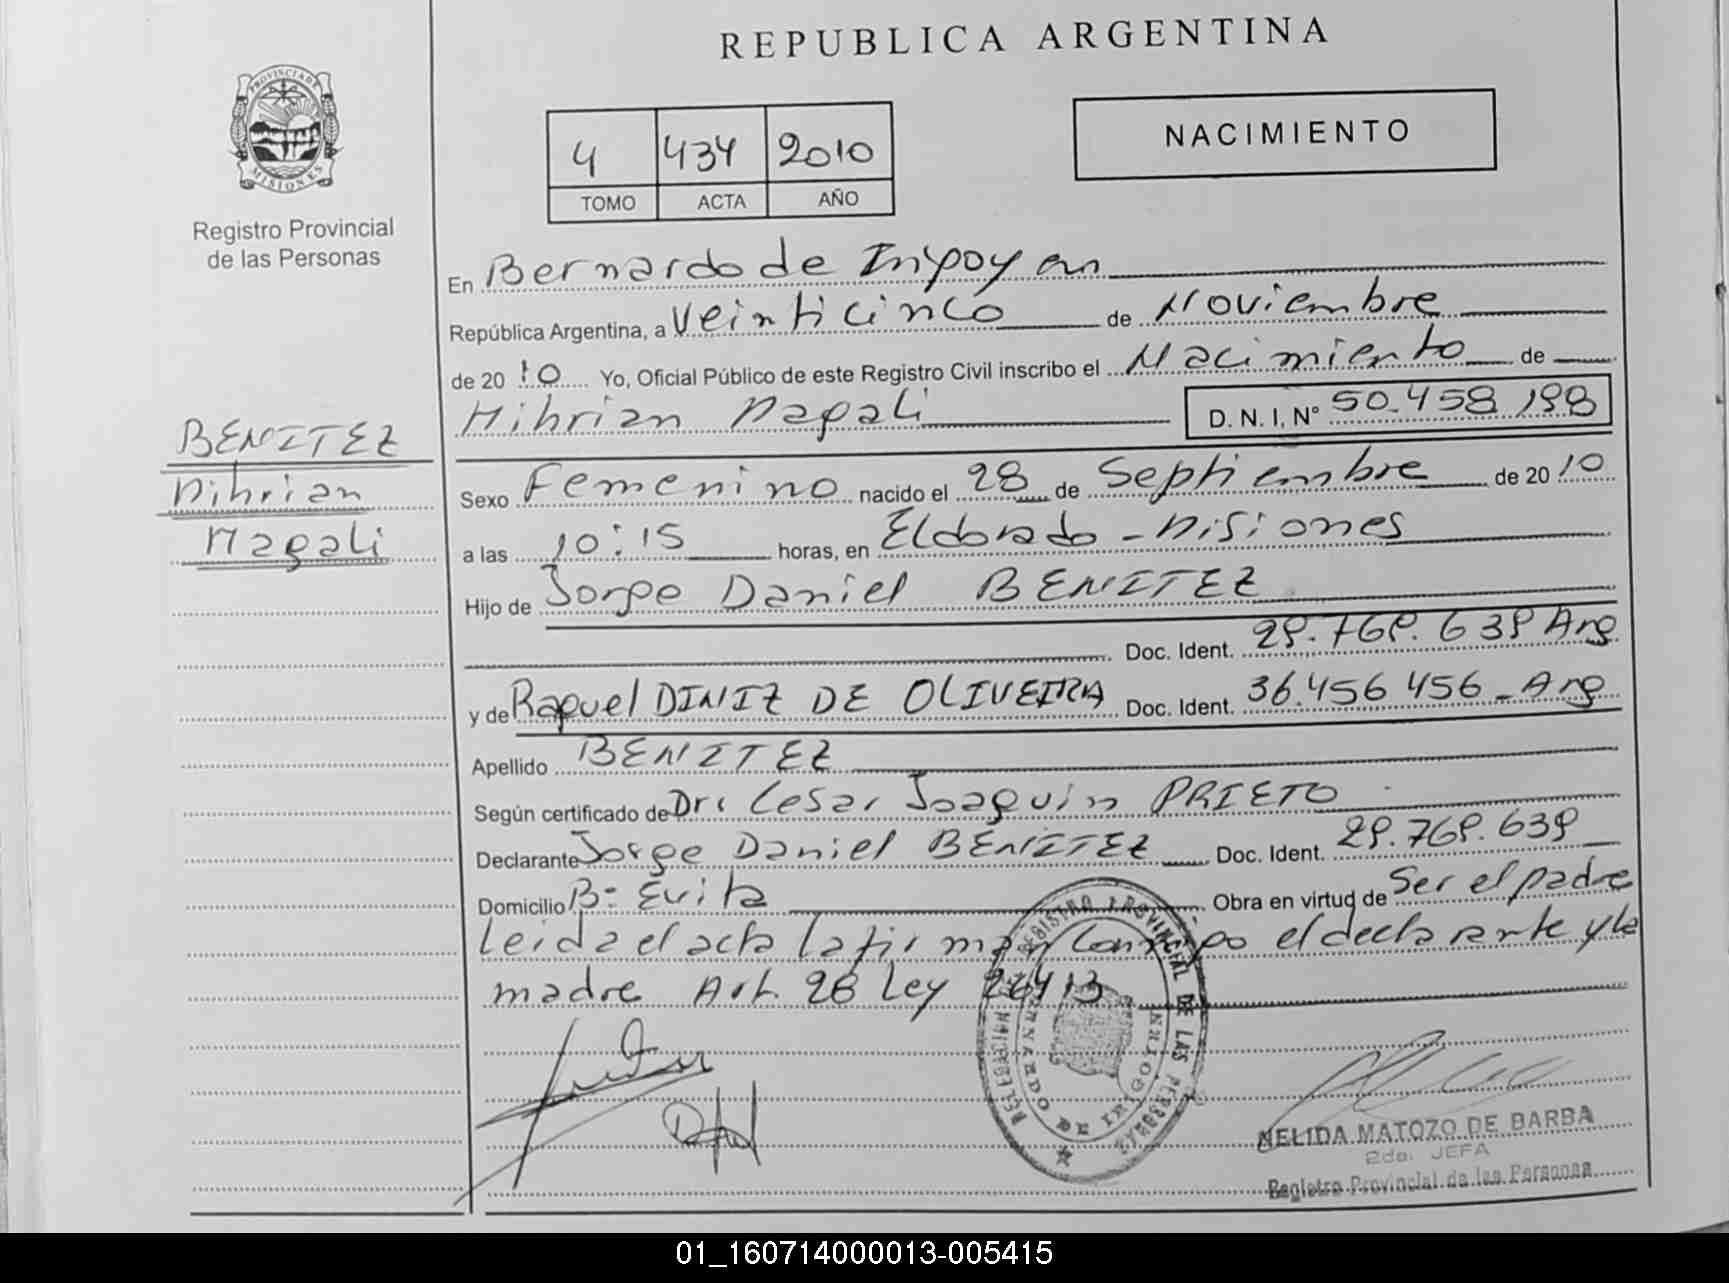 REPUBLICA ARGENTINA
PROVINCIA DE
MISIONES
Registro Provincial
de las Personas
4 434 2010
TOMO ACTA AÑO
NACIMIENTO
En Bernardo de Irigoyen
República Argentina, a Veinticinco de Noviembre
de 20 10 Yo, Oficial Público de este Registro Civil inscribo el Nacimiento de
Mihrian Magali D. N. I. N° 50.458.198
BENITEZ
Mihrian
Magali
Sexo Femenino nacido el 28 de Septiembre de 20 10
a las 10:15 horas, en Eldorado - Misiones
Hijo de Jorge Daniel BENITEZ
Doc. Ident. 29.769.639 Arg
y de Raquel DINIZ DE OLIVEIRA Doc. Ident. 36.456 456 - Arg
Apellido BENITEZ
Según certificado de Dr. Cesar Joaquin PRIETO
Declarante Jorge Daniel BENITEZ Doc. Ident. 29.769.639
Domicilio B= Evita Obra en virtud de Ser el padre
Leida el acta la firman conmigo el declarante y la
madre Art. 28 Ley 26413
REGISTRO PROVINCIAL DE LAS PERSONAS
DELEGACION
BERNARDO DE IRIGOYEN
NELIDA MATOZO DE BARBA
2da. JEFA
Registro Provincial de las Personas
01_160714000013-005415